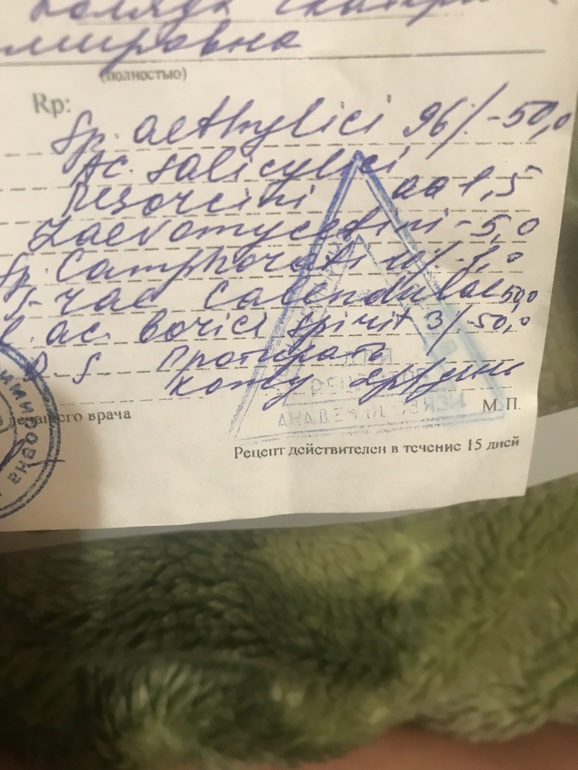 мировна
(полностью)
Rp:
Sp. aethylici 96% - 50,0
Ac. salicylici
Resorcini aa 1,5
Laevomycetini - 5,0
Sp. Camphorati
Calendulae 50,0
ac. borici spirit 3% - 50,0
D. S. Протирать
кожу груди
лечащего врача
М. П.
Рецепт действителен в течение 15 дней